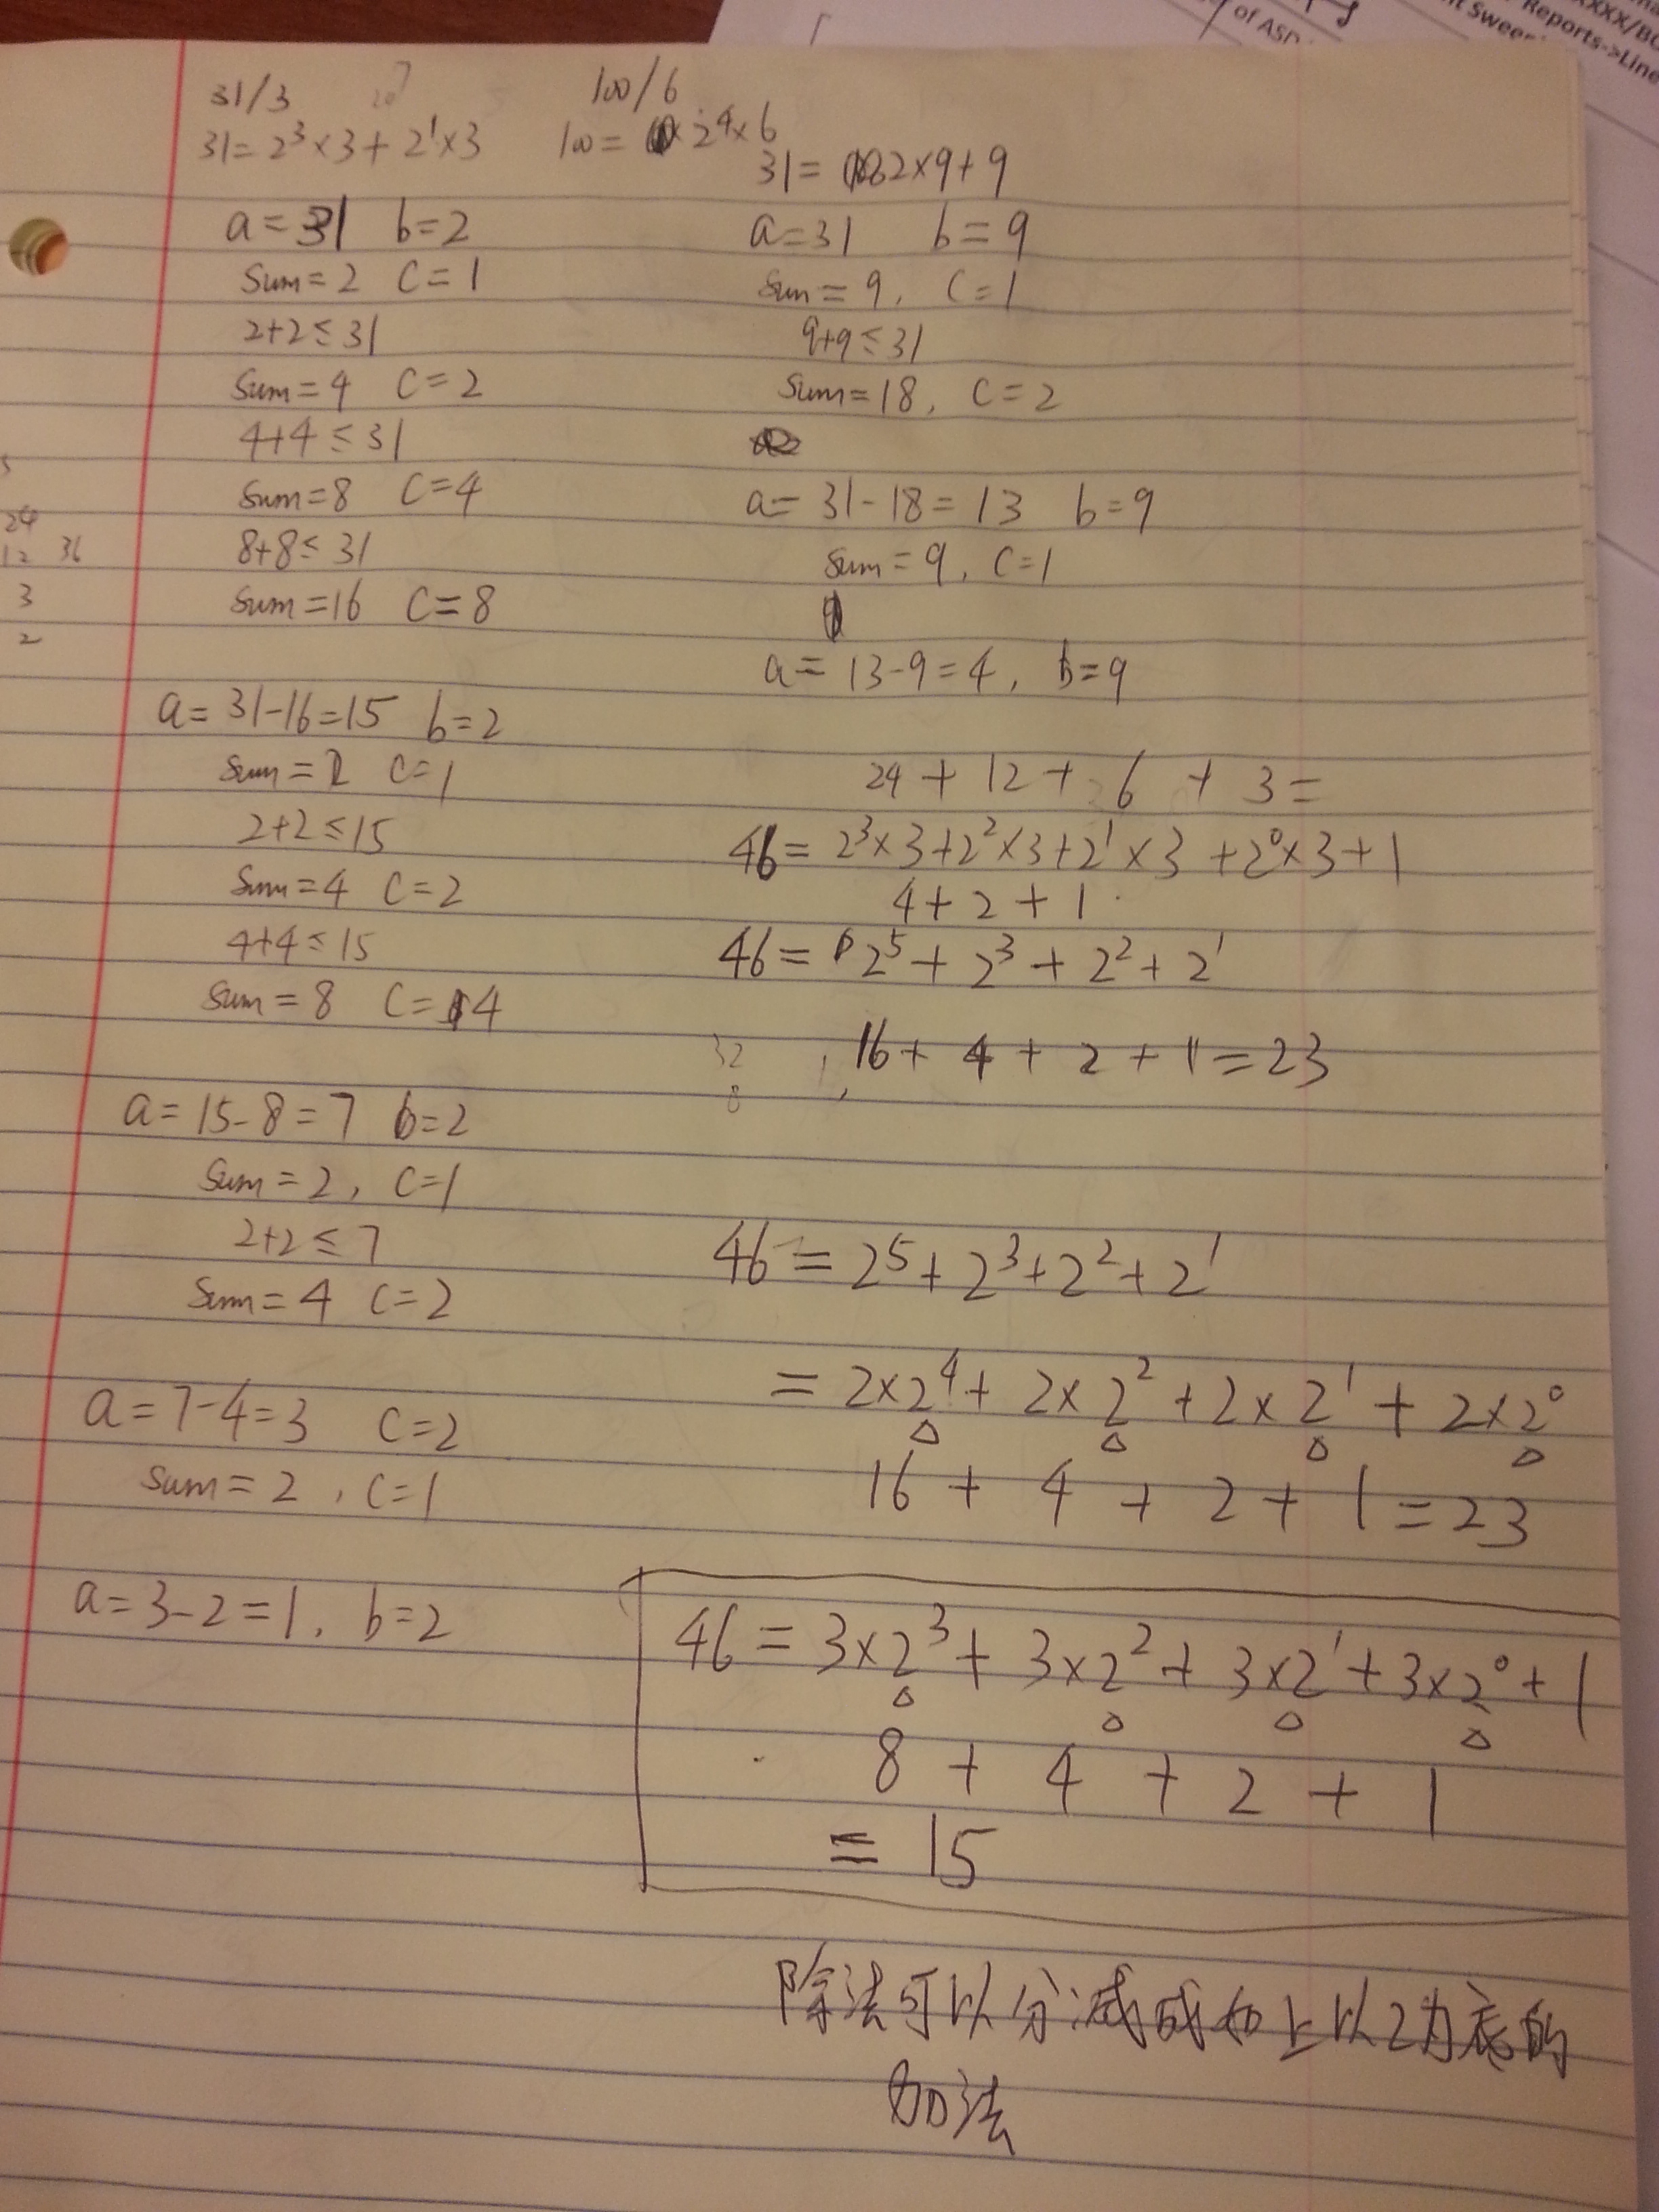 of ASD
Reports->Line
31/3
31=2³×3+2¹×3
a=31 b=2
Sum=2 C=1
2+2≤31
Sum=4 C=2
4+4≤31
Sum=8 C=4
8+8≤31
Sum=16 C=8
a=31-16=15 b=2
Sum=2 C=1
2+2≤15
Sum=4 C=2
4+4≤15
Sum=8 C=4
a=15-8=7 b=2
Sum=2, C=1
2+2≤7
Sum=4 C=2
a=7-4=3 C=2
Sum=2, C=1
a=3-2=1, b=2
24
12 36
3
2
100/6
100= 2⁴×6
31= 2×9+9
a=31 b=9
Sum=9, C=1
9+9≤31
Sum=18, C=2
a=31-18=13 b=9
Sum=9, C=1
a=13-9=4, b=9
24+12+6+3=
46=2³×3+2²×3+2¹×3+2⁰×3+1
4+2+1
46=2⁵+2³+2²+2¹
32
8
16+4+2+1=23
46=2⁵+2³+2²+2¹
=2×2⁴+2×2²+2×2¹+2×2⁰
16+4+2+1=23
46=3×2³+3×2²+3×2¹+3×2⁰+1
8+4+2+1
=15
除法可以分减成如上以2为底的
加法